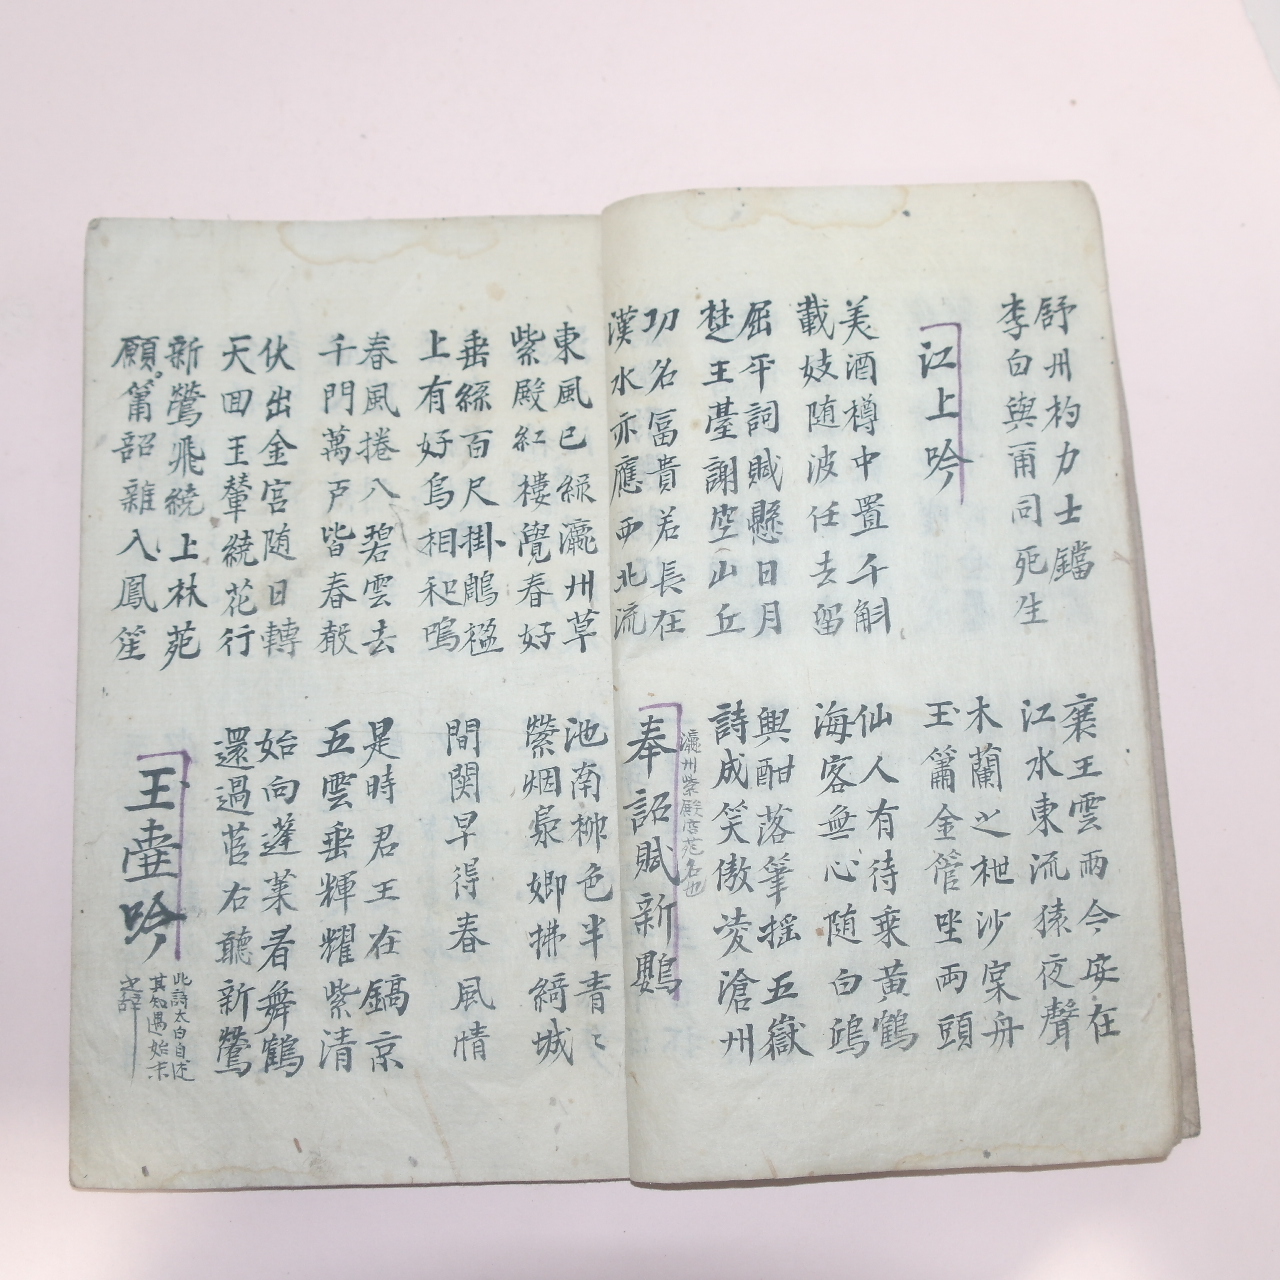 舒州杓力士鐺
李白與甭同死生
襄王雲雨今安在
江水東流猿夜聲
江上吟
木蘭之枻沙棠舟
玉簫金管坐兩頭
美酒樽中置千斛
載妓随波任去留
仙人有待乘黃鶴
海客無心随白鴎
屈平詞賦懸日月
楚王臺謝空山丘
興酣落筆搖五嶽
詩成笑傲凌滄州
功名冨貴若長在
漢水亦應西北流
奉詔賦新鸚
瀛州紫殿唐苑名也
東風已綠瀛州草
紫殿紅樓覺春好
池南柳色半青〻
縈烟裊娜拂綺城
垂絲百尺掛鵰楹
上有好鳥相和鳴
間関早得春風情
春風捲入碧雲去
千門萬戸皆春聲
是時君王在鎬京
五雲垂輝耀紫清
伏出金宮随日轉
天回王輦繞花行
始向蓬莱看舞鶴
還過茝右聽新鶯
新鶯飛繞上林苑
願簫韶雜入鳳笙
王壺吟
此詩太白自述
其知遇始末
之辞